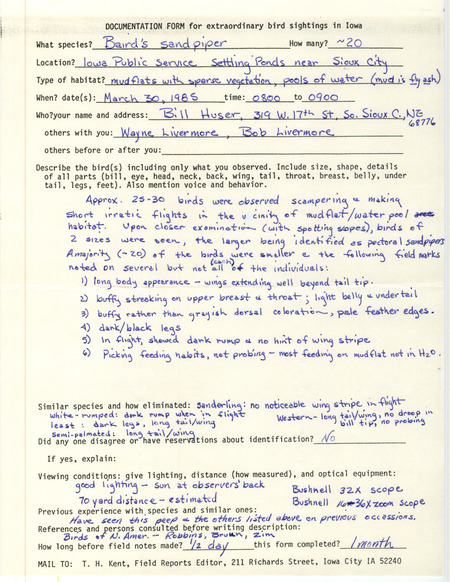 DOCUMENTATION FORM for extraordinary bird sightings in Iowa
What species? Baird's sandpiper How many? ~20
Location? Iowa Public Service Settling Ponds near Sioux City
Type of habitat? mudflats with sparse vegetation, pools of water (mud is fly ash)
When? date(s): March 30, 1985 time: 0800 to 0900
Who?your name and address: Bill Huser, 319 W. 17th St, So. Sioux C., NE
68776
others with you: Wayne Livermore, Bob Livermore
others before or after you:
Describe the bird(s) including only what you observed. Include size, shape, details
of all parts (bill, eye, head, neck, back, wing, tail, throat, breast, belly, under
tail, legs, feet). Also mention voice and behavior.
Approx. 25-30 birds were observed scampering & making
short irratic flights in the vicinity of mudflat/water pool
habitat. Upon closer examination (with spotting scopes), birds of
2 sizes were seen, the larger being identified as pectoral sandpipers
A majority (~20) of the birds were smaller c the following field marks
noted on several but not all (each) of the individuals:
1) long body appearance - wings extending well beyond tail tip.
2) buffy streaking on upper breast & throat; light belly & undertail
3) buffy rather than grayish dorsal coloration, pale feather edges.
4) dark/black legs
5) In flight, showed dark rump & no hint of wing stripe
6) Picking feeding habits, not probing - most feeding on mudflat not in H2O.
Similar species and how eliminated: Sanderling: no noticeable wing stripe in flight
white-rumped: dark rump when in flight Western - long tail/wing, no droop in
least: dark legs, long tail/wing bill tip, no probing
semi-palmated: long tail/wing
Did any one disagree or have reservations about identification? No
If yes, explain:
Viewing conditions: give lighting, distance (how measured), and optical equipment:
good lighting - sun at observers' back Bushnell 32X scope
70 yard distance - estimated Bushnell 16-36X zoom scope
Previous experience with species and similar ones:
Have seen this peep & the others listed above on previous occassions.
References and persons consulted before writing description:
Birds of N. Amer. - Robbins, Bruun, Zim
How long before field notes made? 1/2 day this form completed? 1 month
MAIL TO: T. H. Kent, Field Reports Editor, 211 Richards Street, Iowa City IA 52240